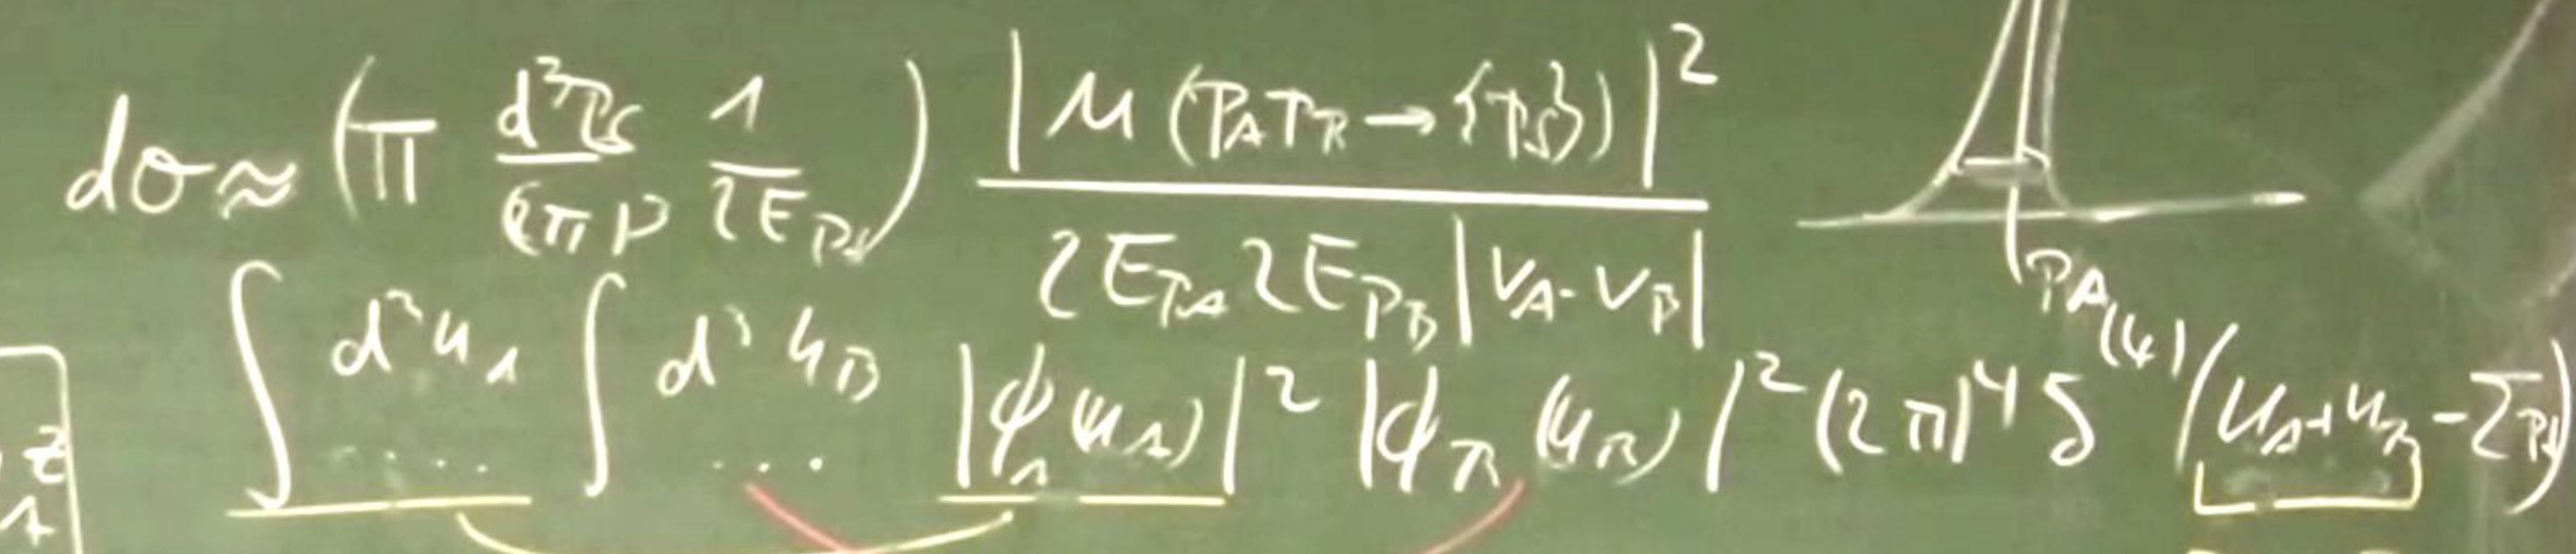 dσ ≈ (∏ d³P_f/(2π)³ 1/2E_{P_f}) |M(P_A P_B → {P_f})|² / 2E_{P_A} 2E_{P_B} |V_A - V_B|
P_A
∫ d³k_A ... ∫ d³k_B ... |ϕ_A(k_A)|² |ϕ_B(k_B)|² (2π)⁴ δ⁽⁴⁾(k_A + k_B - ΣP_f)